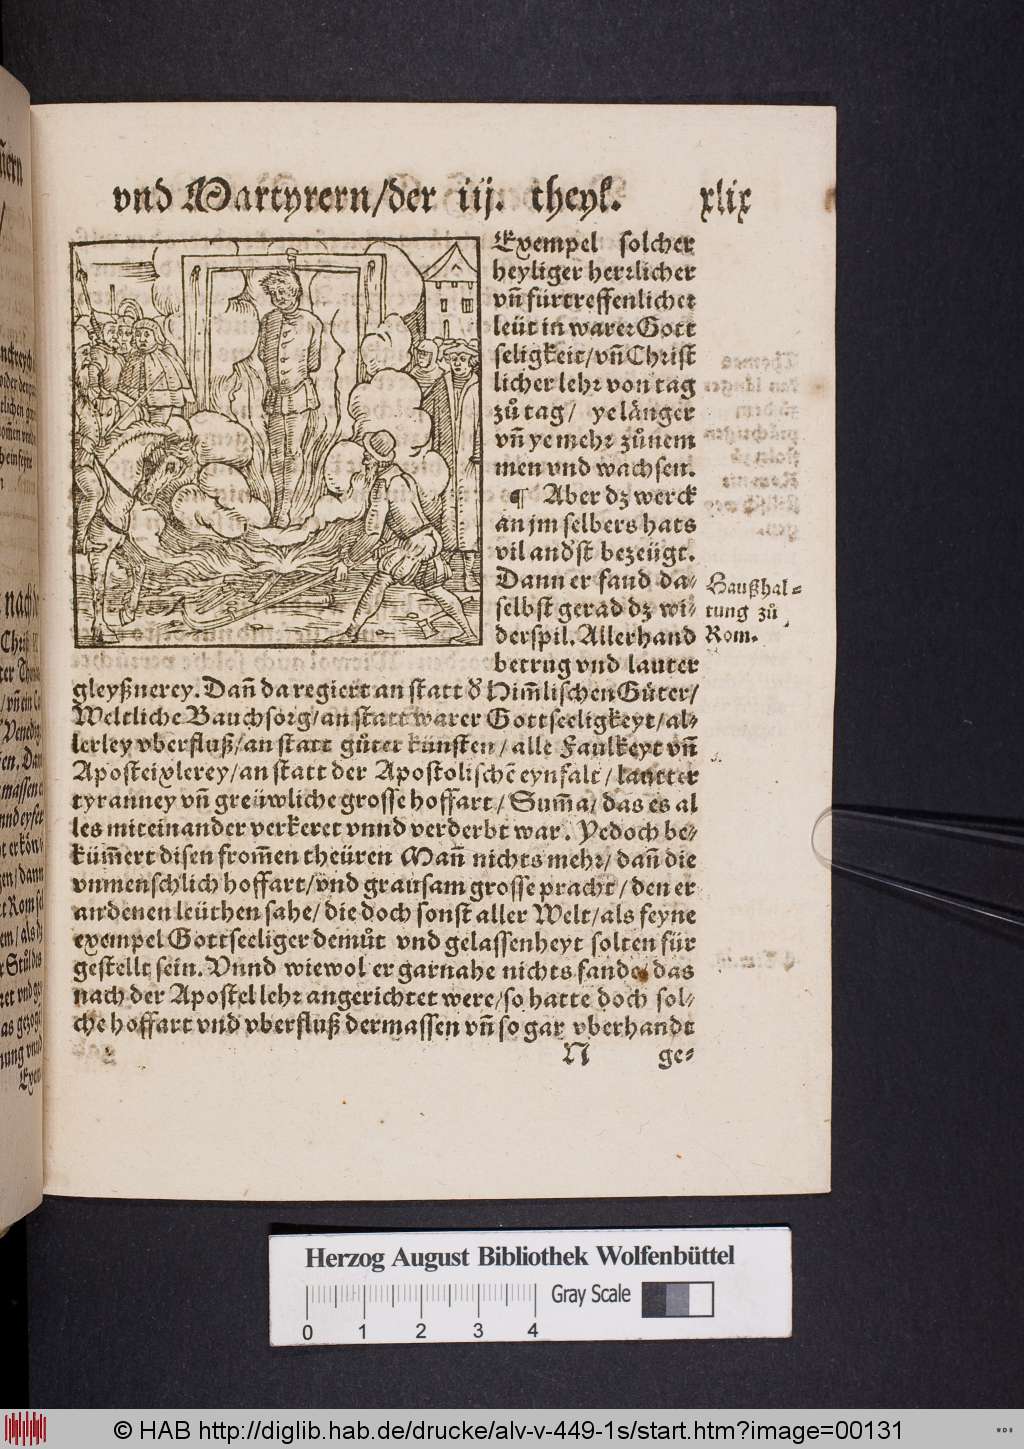 vnd Martyrern/der iij. theyl. xlix
Exempel solcher
heyliger herꝛlicher
vn̄ fürtreffenlicher
leüt in warer Gott
seligkeit/vn̄ Christ
licher lehꝛ von tag
zů tag/ ye länger
vn̄ ye mehꝛ zůnem
men vnd wachsen.
¶ Aber dz werck
an jm selbers hats
vil andſt bezeügt.
Dann er fand da⸗
selbst gerad dz wi⸗
derspil. Allerhand
betrug vnd lauter
gleyßnerey. Dan̄ da regiert an statt d̓ Him̄lischen Güter/
Weltliche Bauchsorg/an statt warer Gottseeligkeyt/al⸗
lerley vberfluß/an statt gůter künsten/ alle Faulkeyt vn̄
Aposteixlerey/an statt der Apostolischē eynfalt/ lautter
tyranney vn̄ greüwliche grosse hoffart/ Sum̄a/ das es al
les miteinander verkeret vnnd verderbt war. Yedoch be⸗
küm̄ert disen from̄en theüren Man̄ nichts mehꝛ/ dan̄ die
vnmenschlich hoffart/vnd grausam grosse pracht/ den er
an denen leüthen sahe/ die doch sonst aller Welt/als feyne
exempel Gottseeliger demůt vnd gelassenheyt solten für
gestellt sein. Vnnd wiewol er gar nahe nichts fande/ das
nach der Apostel lehꝛ angerichtet were/ so hatte doch sol⸗
che hoffart vnd vberfluß dermassen vn̄ so gar vberhandt
N ge⸗
Haußhal⸗
tung zů
Rom.
Herzog August Bibliothek Wolfenbüttel
0 1 2 3 4
Gray Scale
© HAB http://diglib.hab.de/drucke/alv-v-449-1s/start.htm?image=00131